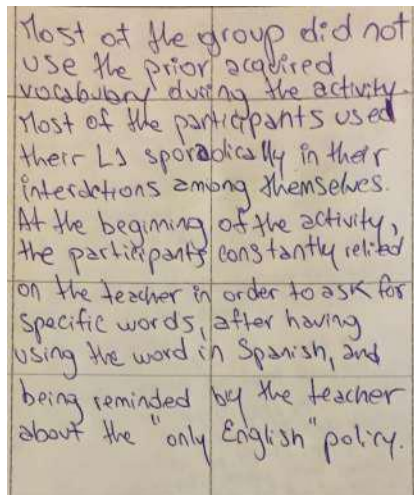 Most of the group did not
use the prior acquired
vocabulary during the activity.
Most of the participants used
their L1 sporadically in their
interactions among themselves.
At the beginning of the activity,
the participants constantly relied
on the teacher in order to ask for
specific words, after having
using the word in Spanish, and
being reminded by the teacher
about the "only English" policy.